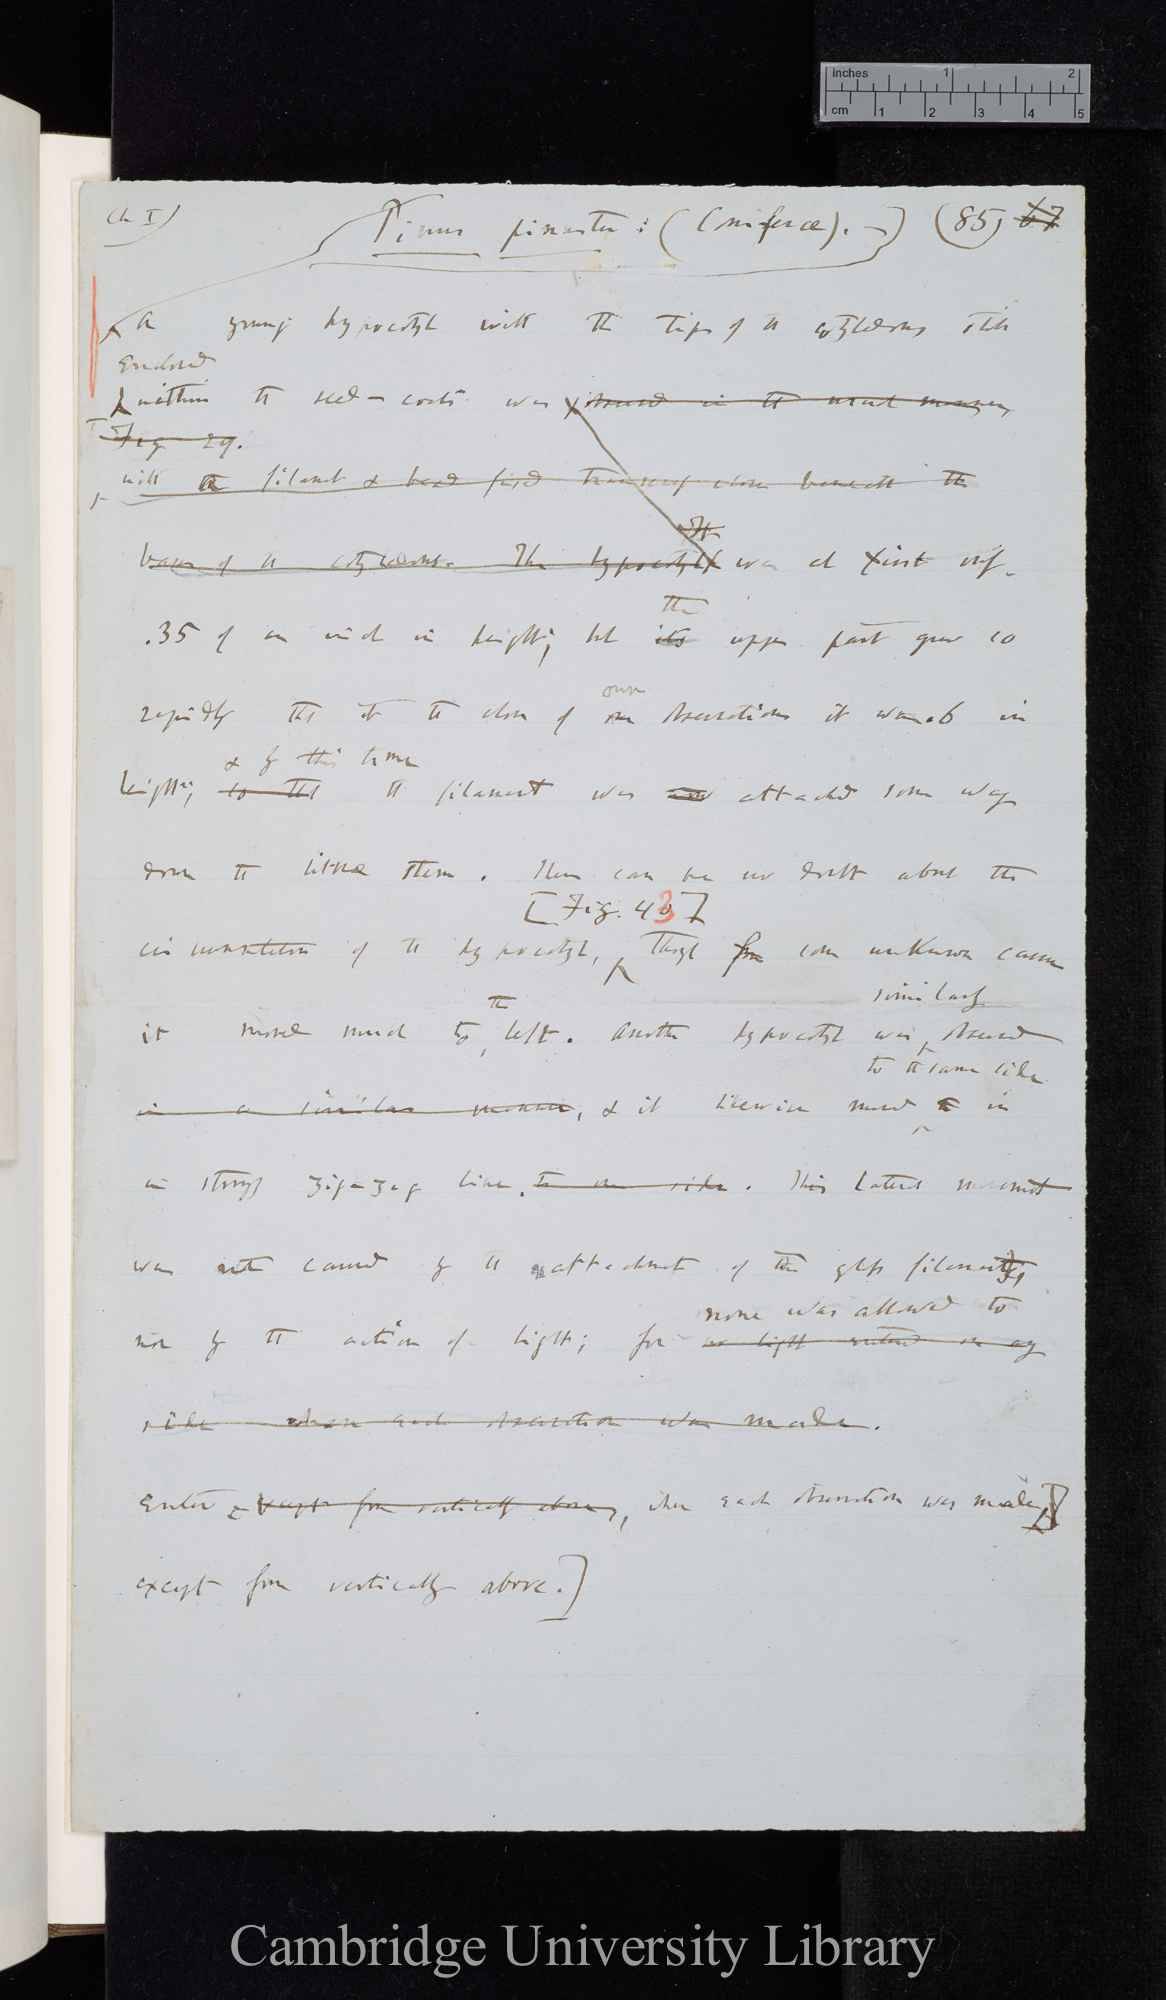 Inches 1 2
cm 1 2 3 4 5
Ch I)
Pinus pinaster: (Coniferæ).—) (85) 67
A young hypocotyl with the tips of the cotyledons still
enclosed
within the seed-coats was observed in the usual manner,
Fig 29.
with a filament & bead fixed transversely close beneath the
It
bases of the cotyledons. The hypocotyl was at first only
.35 of an inch in height; but its upper part grew so
the
rapidly that at the close of our observations it was .6 in
our
& by this time
height; so that the filament was now attached some way
down the little stem. There can be no doubt about the
[Fig. 43]
circumnutation of the hypocotyl, though from some unknown cause
similarly
it moved much to the left. Another hypocotyl was observed
to the same side
in a similar manner, & it likewise moved in
a strongly zig-zag line to one side. This lateral movement
was not caused by the attachment of the glass filaments,
none was allowed to
nor by the action of light; for no light entered on any
side when each observation was made.
enter except from vertically above, when each observation was made,]
except from vertically above.]
Cambridge University Library